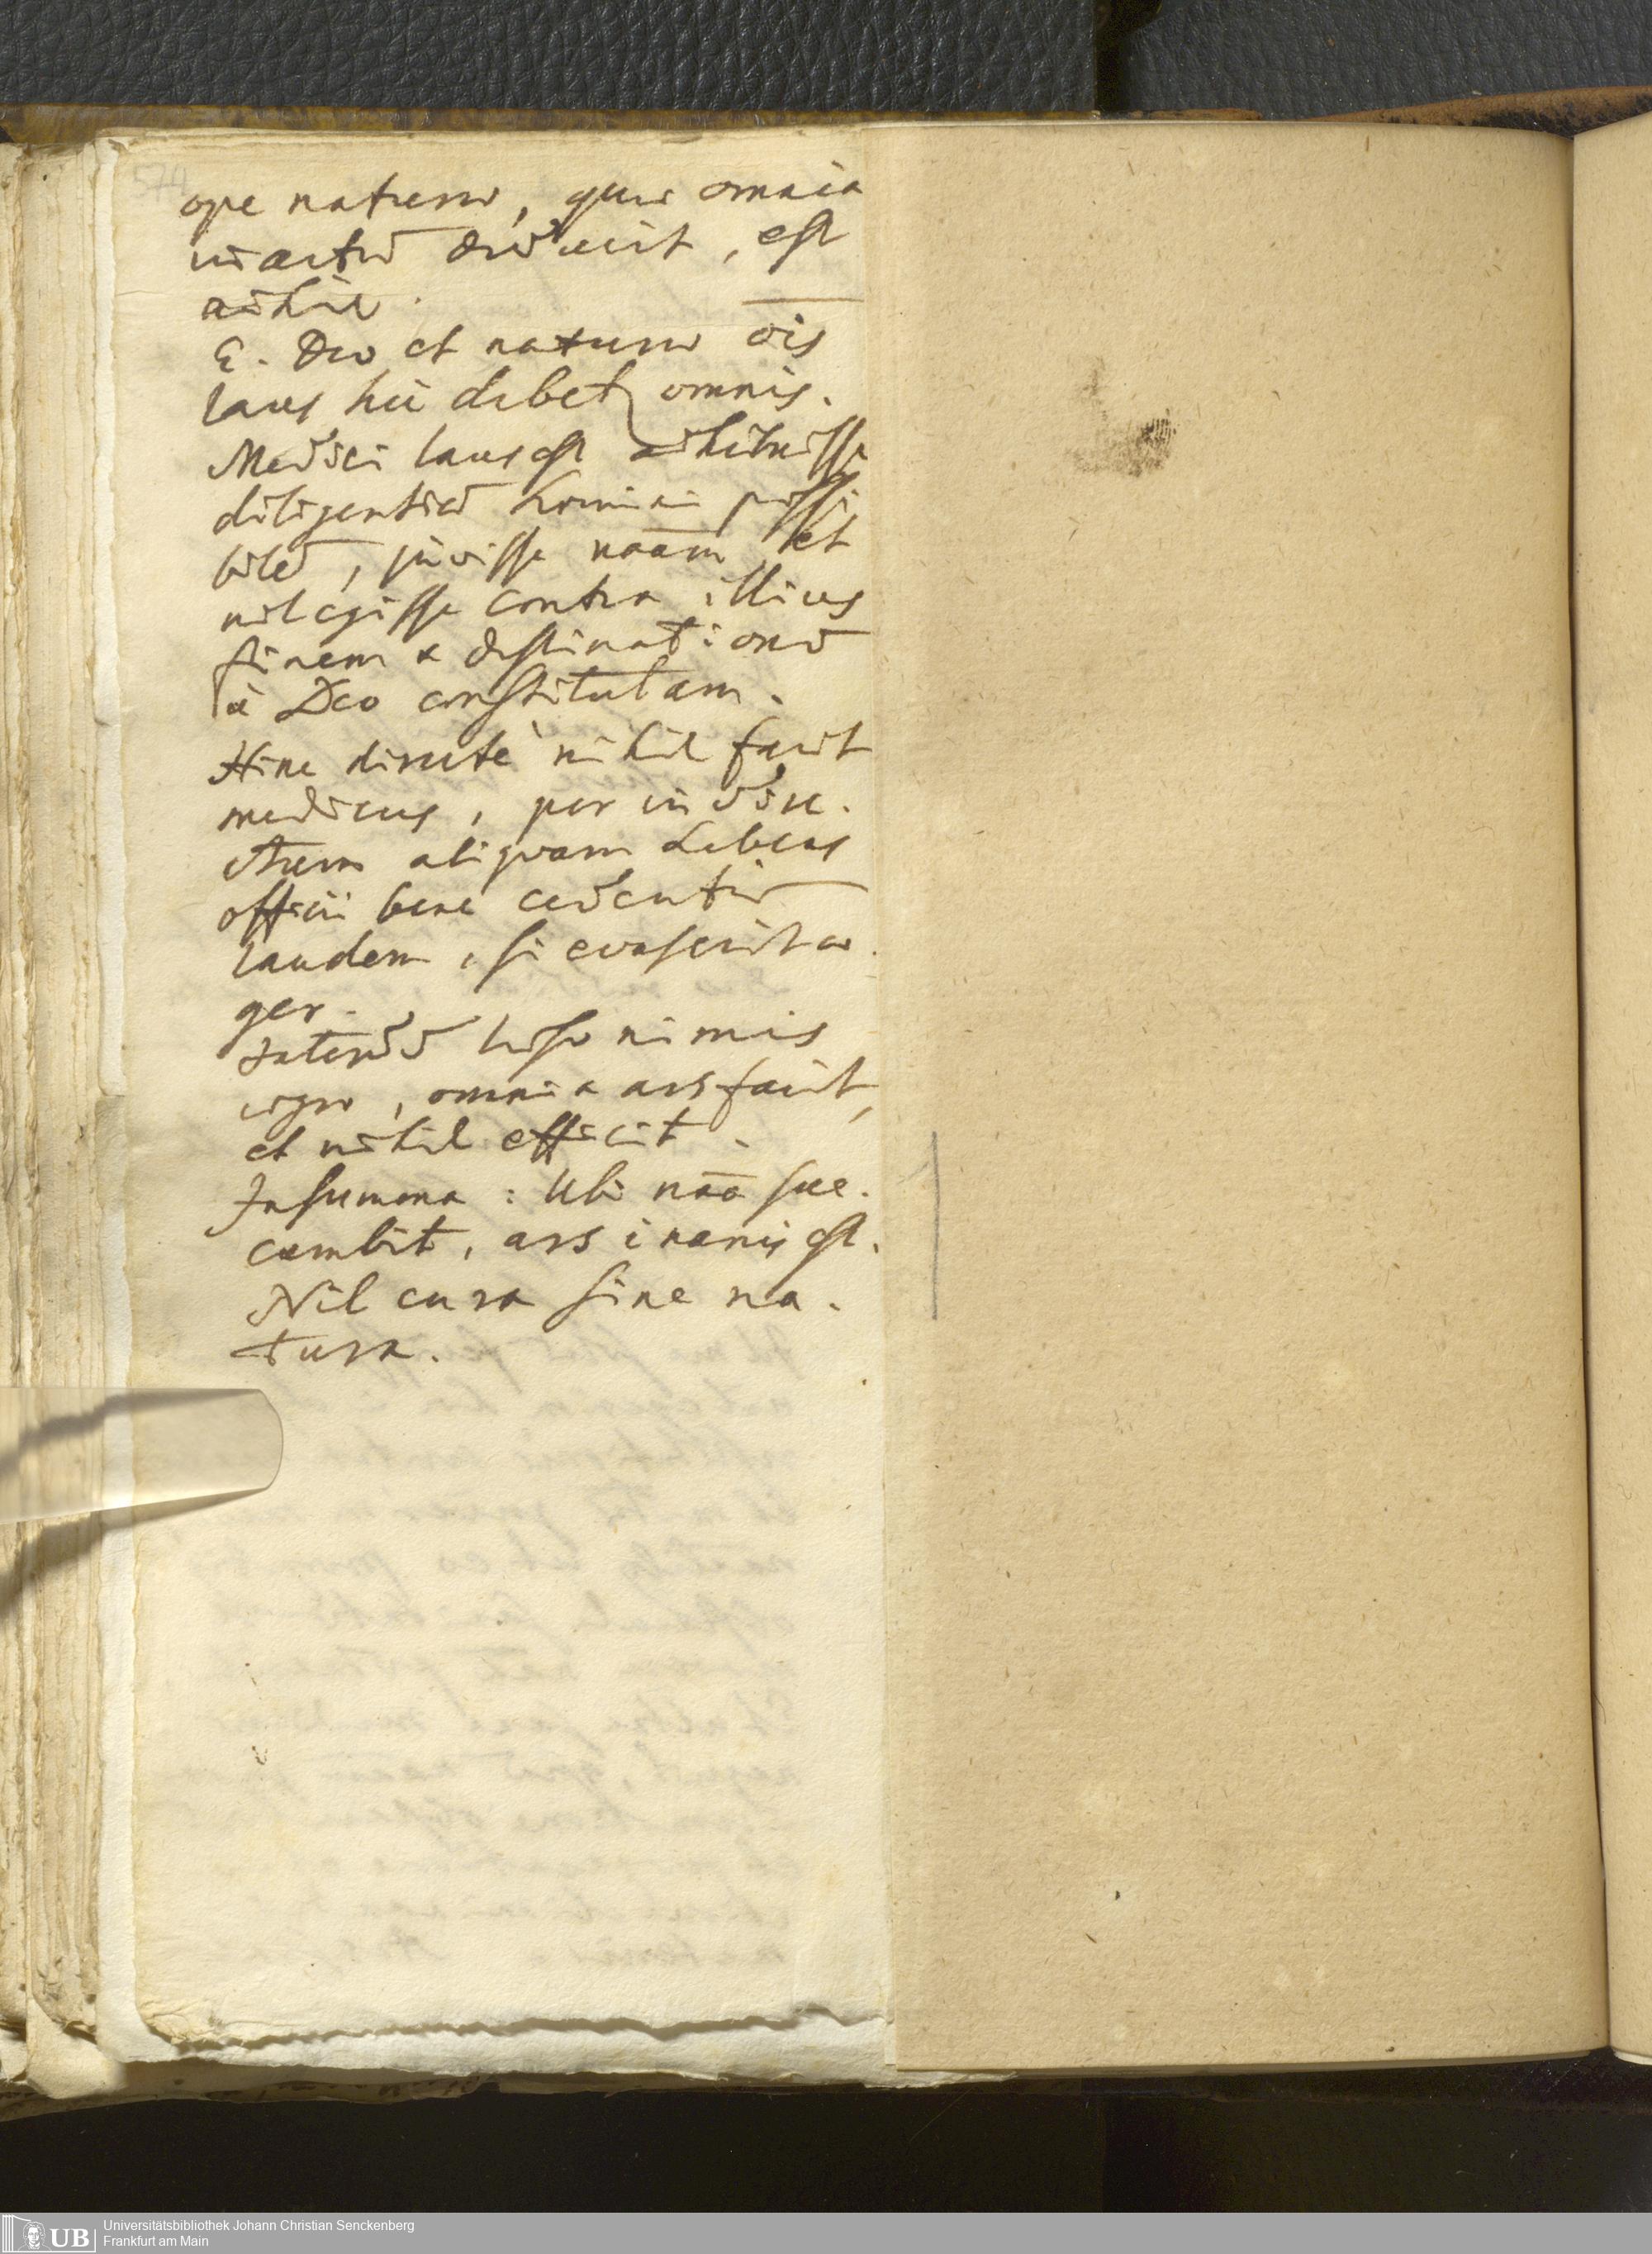 574
ope naturæ, quæ omnia
in actū deducit, est
nihil.
E. Deo et naturæ oīs
laus hic debet omnis.
Medici laus est adhibuisse
diligentiā homini possi
bilē, juvisse nāām et
nil egisse contra illius
finem & destinationē
à Deo constitutam.
Hinc directè nihil facit
medicus, per indire.
ctum aliquam habeas
officii bene cedentis
laudem, si evaserit æ.
ger.
Interdū læso nimis
ægro, omnia ars facit,
et nihil efficit.
In summa: Ubi nāā suc.
cumbit, ars inanis est.
Nil cura sine na.
tura.
UB Universitätsbibliothek Johann Christian Senckenberg
Frankfurt am Main